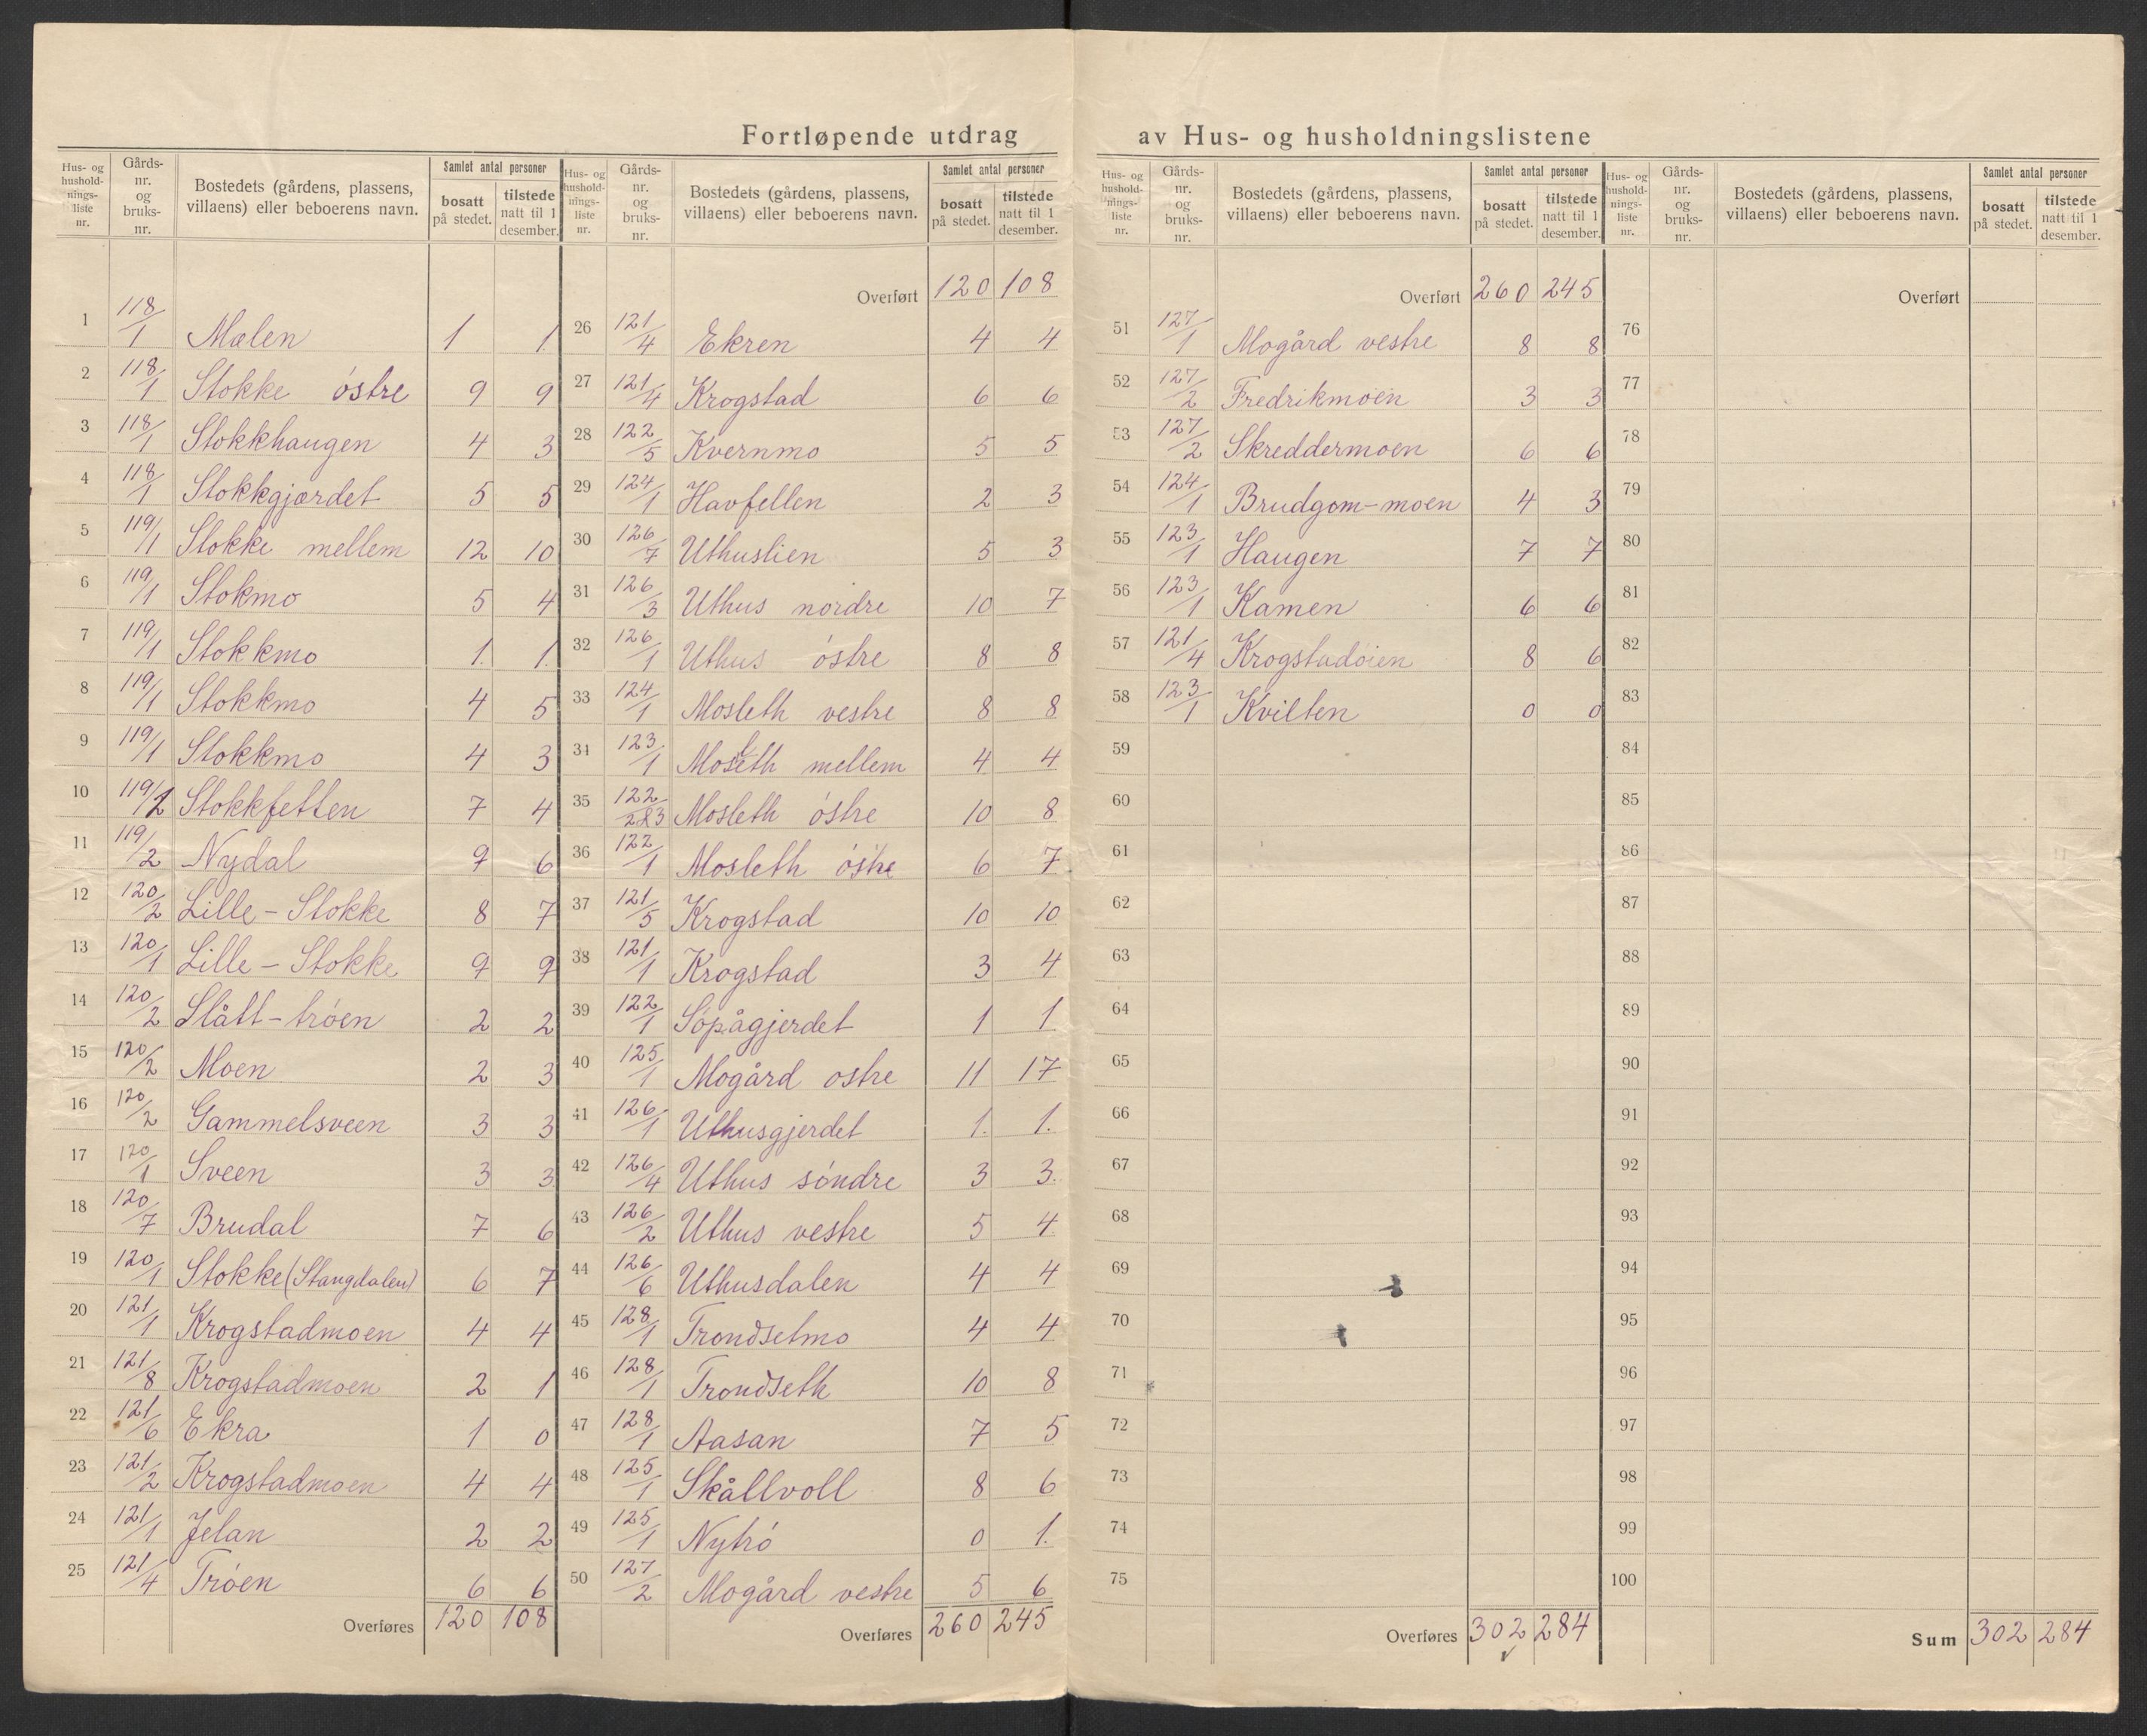 Fortløpende utdrag av Hus- og husholdningslistene
Hus- og husholdningsliste nr. | Gårds-nr. og bruks-nr. | Bostedets (gårdens, plassens, villaens) eller beboerens navn. | Samlet antal personer | bosatt på stedet. | tilstede natt til 1 desember.
1 118/1 Mælen 1 1
2 118/1 Stokke östre 9 9
3 118/1 Stokkhaugen 4 3
4 118/1 Stokkgjærdet 5 5
5 119/1 Stokke mellem 12 10
6 119/1 Stokmo 5 4
7 119/1 Stokkmo 1. 1.
8 119/1 Stokkmo 4 5
9 119/1 Stokkmo 4 3
10 119/2 Stokkfetten 7 4
11 119/2 Nydal 9 6
12 120/2 Lille-Stokke 8 7
13 120/1 Lille-Stokke 9 9
14 120/2 Slått-tröen 2 2
15 120/2 Moen 2 3
16 120/2 Gammelsveen 3 3
17 120/1 Sveen 3 3
18 120/7 Brudal 7 6
19 120/1 Stokke (Stangdalen) 6 7
20 121/1 Krogstadmoen 4 4
21 121/8 Krogstadmoen 2 1
22 121/6 Ekra 1 0
23 121/2 Krogstadmoen 4 4
24 121/1 Jelan 2 2
25 121/4 Tröen 6 6
Overføres 120 108
Hus- og husholdningsliste nr. | Gårds-nr. og bruks-nr. | Bostedets (gårdens, plassens, villaens) eller beboerens navn. | Samlet antal personer | bosatt på stedet. | tilstede natt til 1 desember.
Overført 120 108
26 121/4 Ekren 4 4
27 121/4 Krogstad 6 6
28 122/5 Kvernmo 5 5
29 124/1 Havfellen 2 3
30 126/7 Uthuslien 5 3
31 126/3 Uthus nordre 10 7
32 126/1 Uthus östre 8 8
33 124/1 Mosleth vestre 8 8
34 123/1 Mosleth mellem 4 4
35 122/2&3 Mosleth östre 10 8
36 122/1 Mosleth östre 6 7
37 121/5 Krogstad 10 10
38 121/1 Krogstad 3 4
39 122/1 Söpågjerdet 1 1
40 125/1 Mogård ostre 11 17
41 126/1 Uthusgjerdet 1. 1.
42 126/4 Uthus söndre 3 3.
43 126/2 Uthus vestre 5 4
44 126/6 Uthusdalen 4 4
45 128/1 Trondsetmo 4 4
46 128/1 Trondseth 10 8
47 128/1 Aasan 7 5
48 125/1 Skållvoll 8 6
49 125/1 Nytrö 0 1.
50 127/2 Mogård vestre 5 6
Overføres 260 245
Hus- og husholdningsliste nr. | Gårds-nr. og bruks-nr. | Bostedets (gårdens, plassens, villaens) eller beboerens navn. | Samlet antal personer | bosatt på stedet. | tilstede natt til 1 desember.
Overført 260 245
51 127/1 Mogård vestre 8 8
52 127/2 Fredrikmoen 3 3
53 127/2 Skreddermoen 6 6
54 124/1 Brudgom-moen 4 3
55 123/1 Haugen 7 7
56 123/1 Kamen 6 6
57 121/4 Krogstadöien 8 6
58 123/1 Kvilten 0 0
59
60
61
62
63
64
65
66
67
68
69
70
71
72
73
74
75
Overføres 302 284
Hus- og husholdningsliste nr. | Gårds-nr. og bruks-nr. | Bostedets (gårdens, plassens, villaens) eller beboerens navn. | Samlet antal personer | bosatt på stedet. | tilstede natt til 1 desember.
Overført
76
77
78
79
80
81
82
83
84
85
86
87
88
89
90
91
92
93
94
95
96
97
98
99
100
Sum 302 284